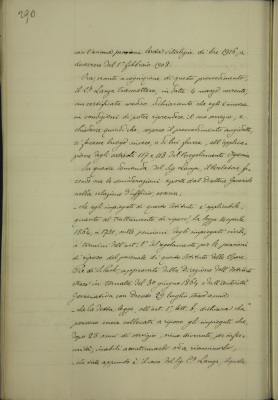 290
con l'annua pensione lorda vitalizia di lire 1916, a
decorrere dal 1º febbraio 1908.
Ora, venuto a cognizione di questo provvedimento,
il Cº Lanza trasmetteva, in data 4 maggio corrente,
un certificato medico dichiarante che egli è ancora
in condizioni di poter riprendere il suo servizio, e
chiedeva quindi che, sospeso il provvedimento
si facesse luogo invece, a di lui favore, all'applica-
zione degli articoli 117 e 118 del Regolamento Organico
In questa domanda del Sig. Lanza, il
le considerazioni esposte dal Direttore Generale
nella relazione d'ufficio, ossia:
che agli impiegati di questo Istituto è applicabile,
quanto al trattamento di riposo, la legge 14 aprile
1864, n. 1731, sulle pensioni degli impiegati civili,
a termini dell'art. 1º del regolamento per le pensioni
di riposo del personale di questo Istituto delle Opere
Pie di S. Paolo, approvato dalla Direzione dell'Istituto
stesso in tornata del 30 giugno 1864 e dall'autorità
Governativa con decreto 29 luglio stesso anno;
che la detta legge, all'art. 1º, lett. b, dichiara che
possono venire collocati a riposo gli impiegati che,
dopo 25 anni di servizio, sono divenuti, per infer-
mità, inabili a continuarlo od a riassumerlo;
che tale appunto è il caso del Sig. Cº Lanza, il quale